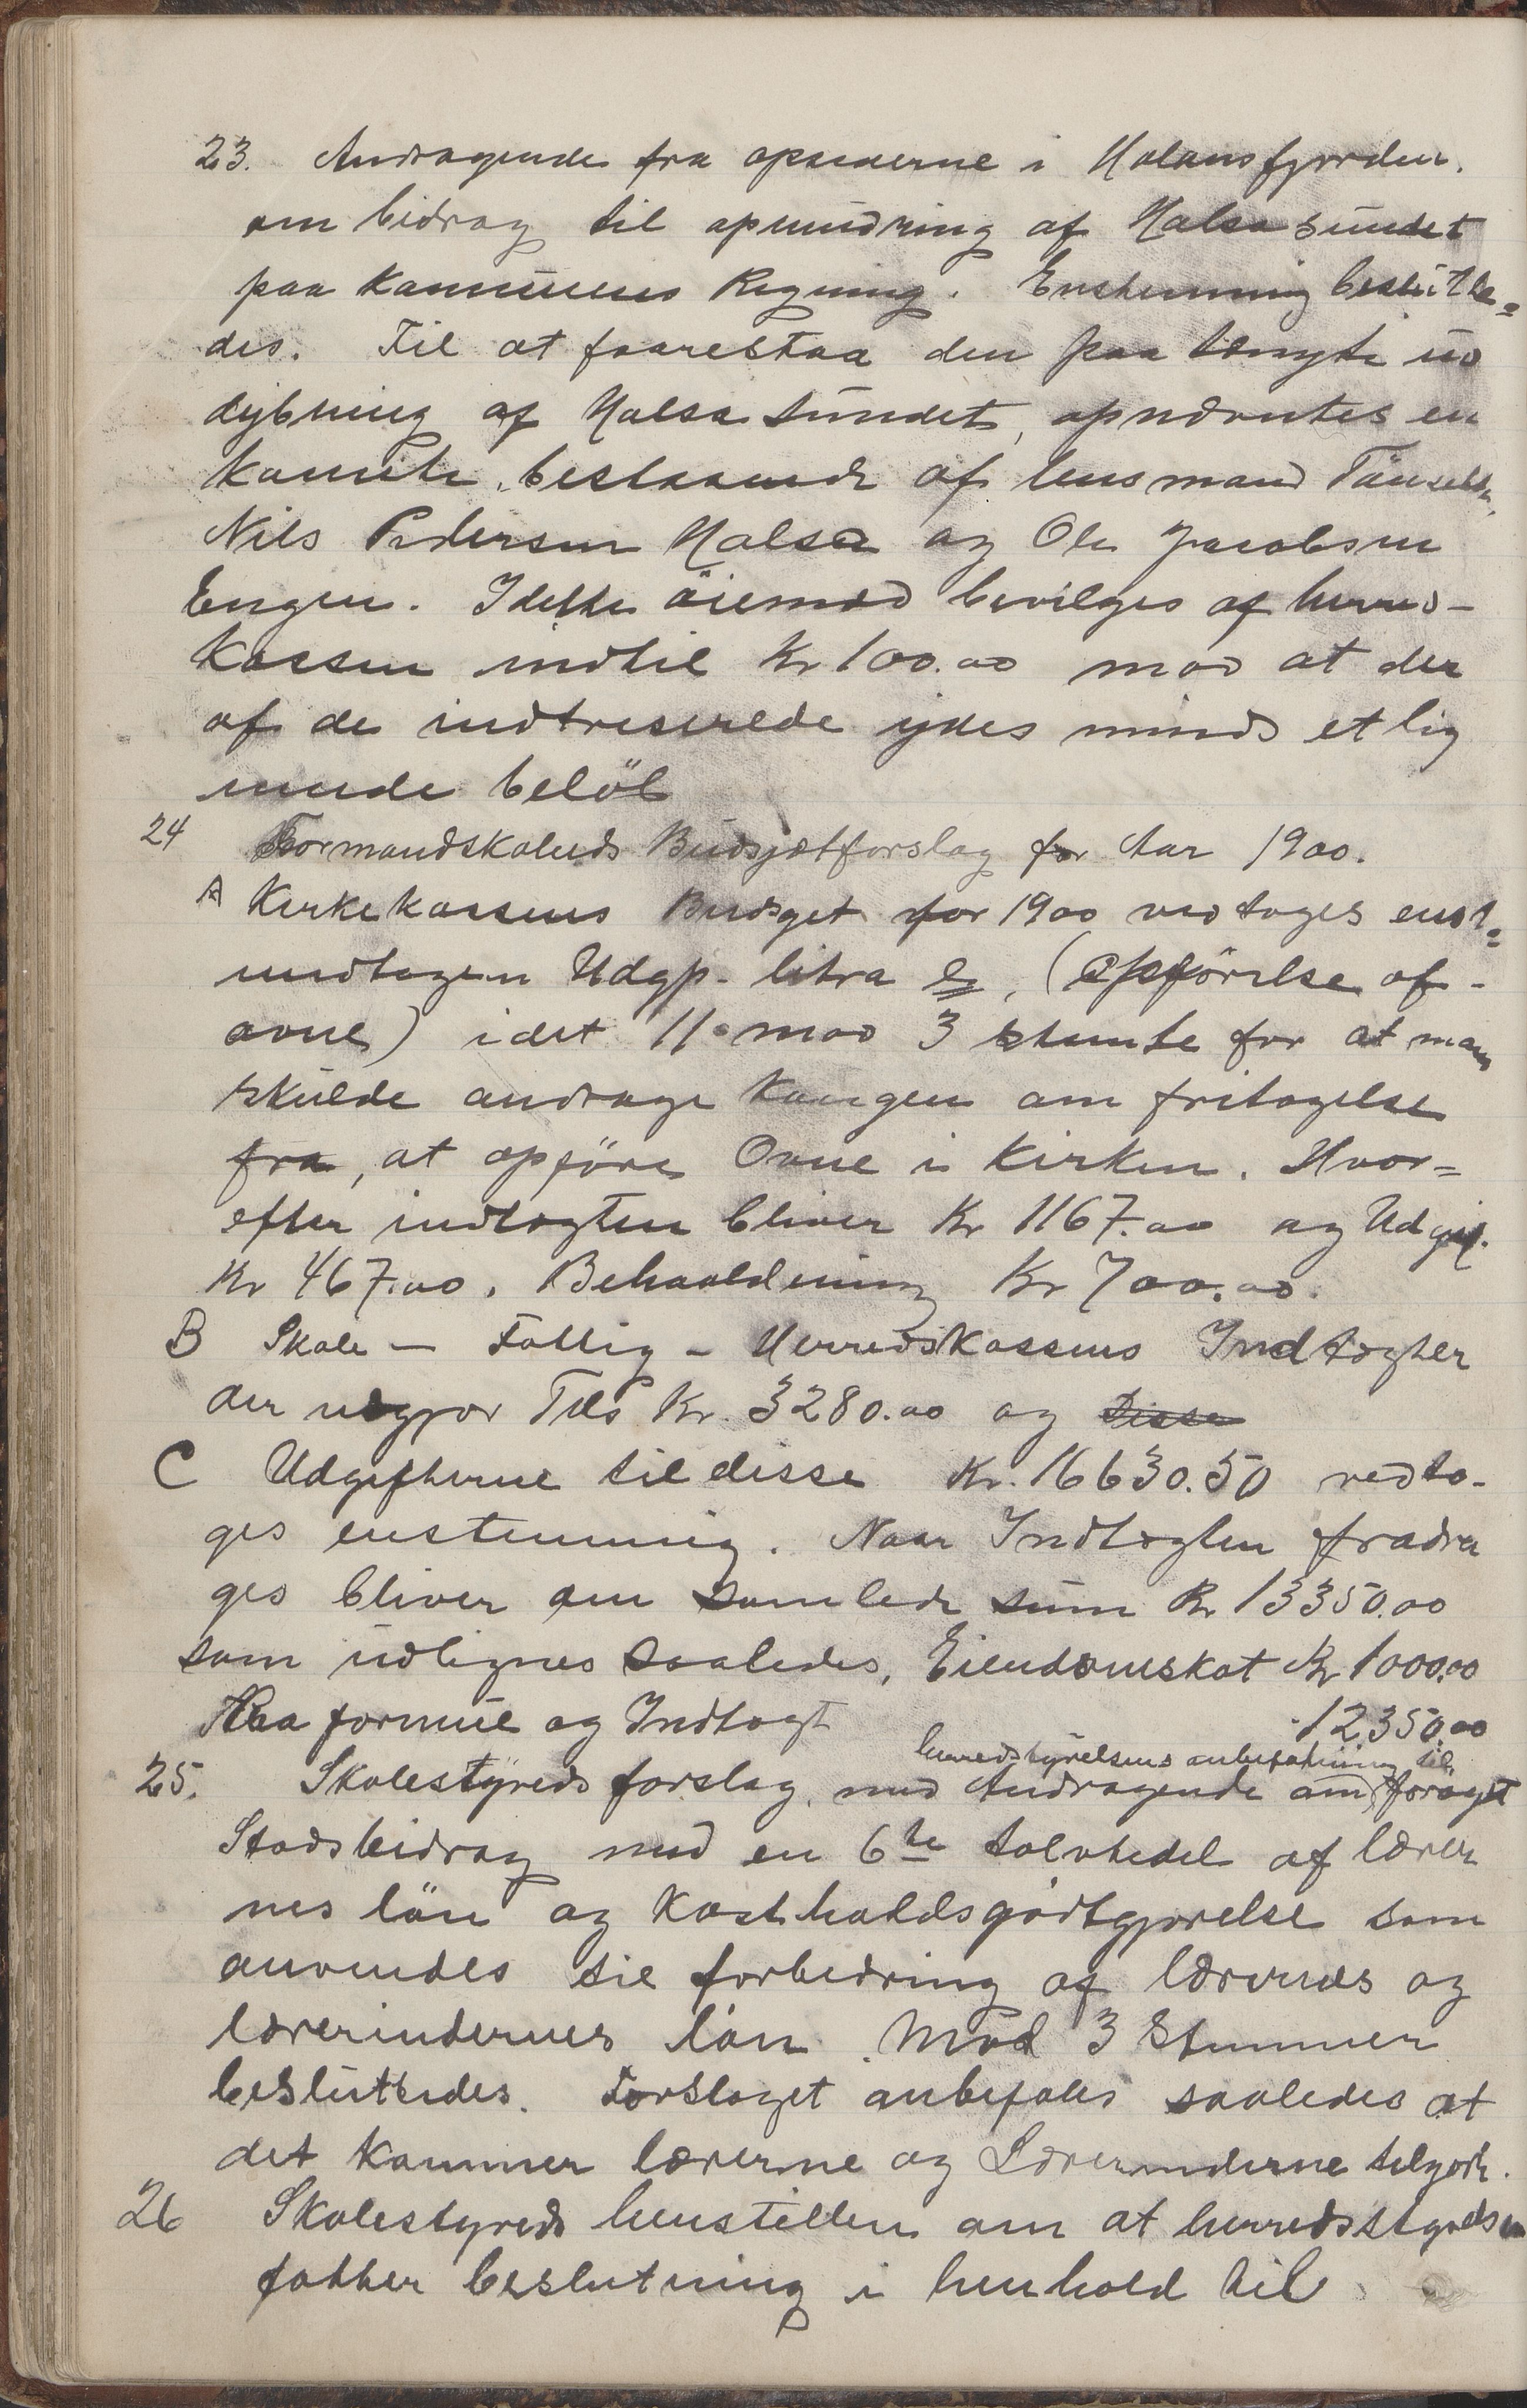 23. Andragende fra opsiderne i Holansfjorden.
om bidrag til opmudring af Halsasundet
paa Kommunens Regning. Enstemmig beslutte=
des. Til at forrestaa den paa tænkte ud
dybning af Halsa Sundet, opnævntes en
Komite, bestaaende af lensmand
Nils Pedersen Halsa og Ole Jacobsen
Engen. I dette öiemed bevilges af herreds-
Kassen indtil Kr 100.00 mod at der
af de indtreserede ydes minds et lig
nende belöb
24 Formandskabeds Budsjetforslag for Aar 1900.
A Kirkekassens Budget for 1900 vedtoges enst=
undtagen Udgp. litra g, (opförelse af -
ovne) idet 11 mod 3 stemte for at man
skulde andrage Kongen om fritagelse
fra, at opföre Ovne i Kirken. Hvor=
efter indtægten bliver Kr 1167.00 og Udgif.
Kr 467.00. Behaaldning Kr 700.00.
B Skole - Fattig - Herredskassens Indtægter
der udgjør Tils Kr. 3280.00 og disse
C Udgifterne til disse Kr. 16630.50 vedto-
ges enstemmig. Naar Indtægten fradra
ges bliver den samlede sum Kr 13350.00
som udlignes saaledes, Eiendomskat Kr 1000.00
Paa formue og Indtægt 12350.00
herredstyrelsens anbefahling til
25. Skolestyreds forslag, med Andragende om forøget
Stadsbidrag med en 6te tolvtedel af lærer
nes lön og Kostholdsgodtgjørelse som
anvendes til forbedring af lærernes og
lærerindernes lön. Mod 3 Stemmer
besluttedes. Forslaget anbefales saaledes at
det Kommer lærerne og Lærerinderne tilgode.
26 Skolestyreds henstillen om at herredsstyrelsen
fatter beslutning i henhold til